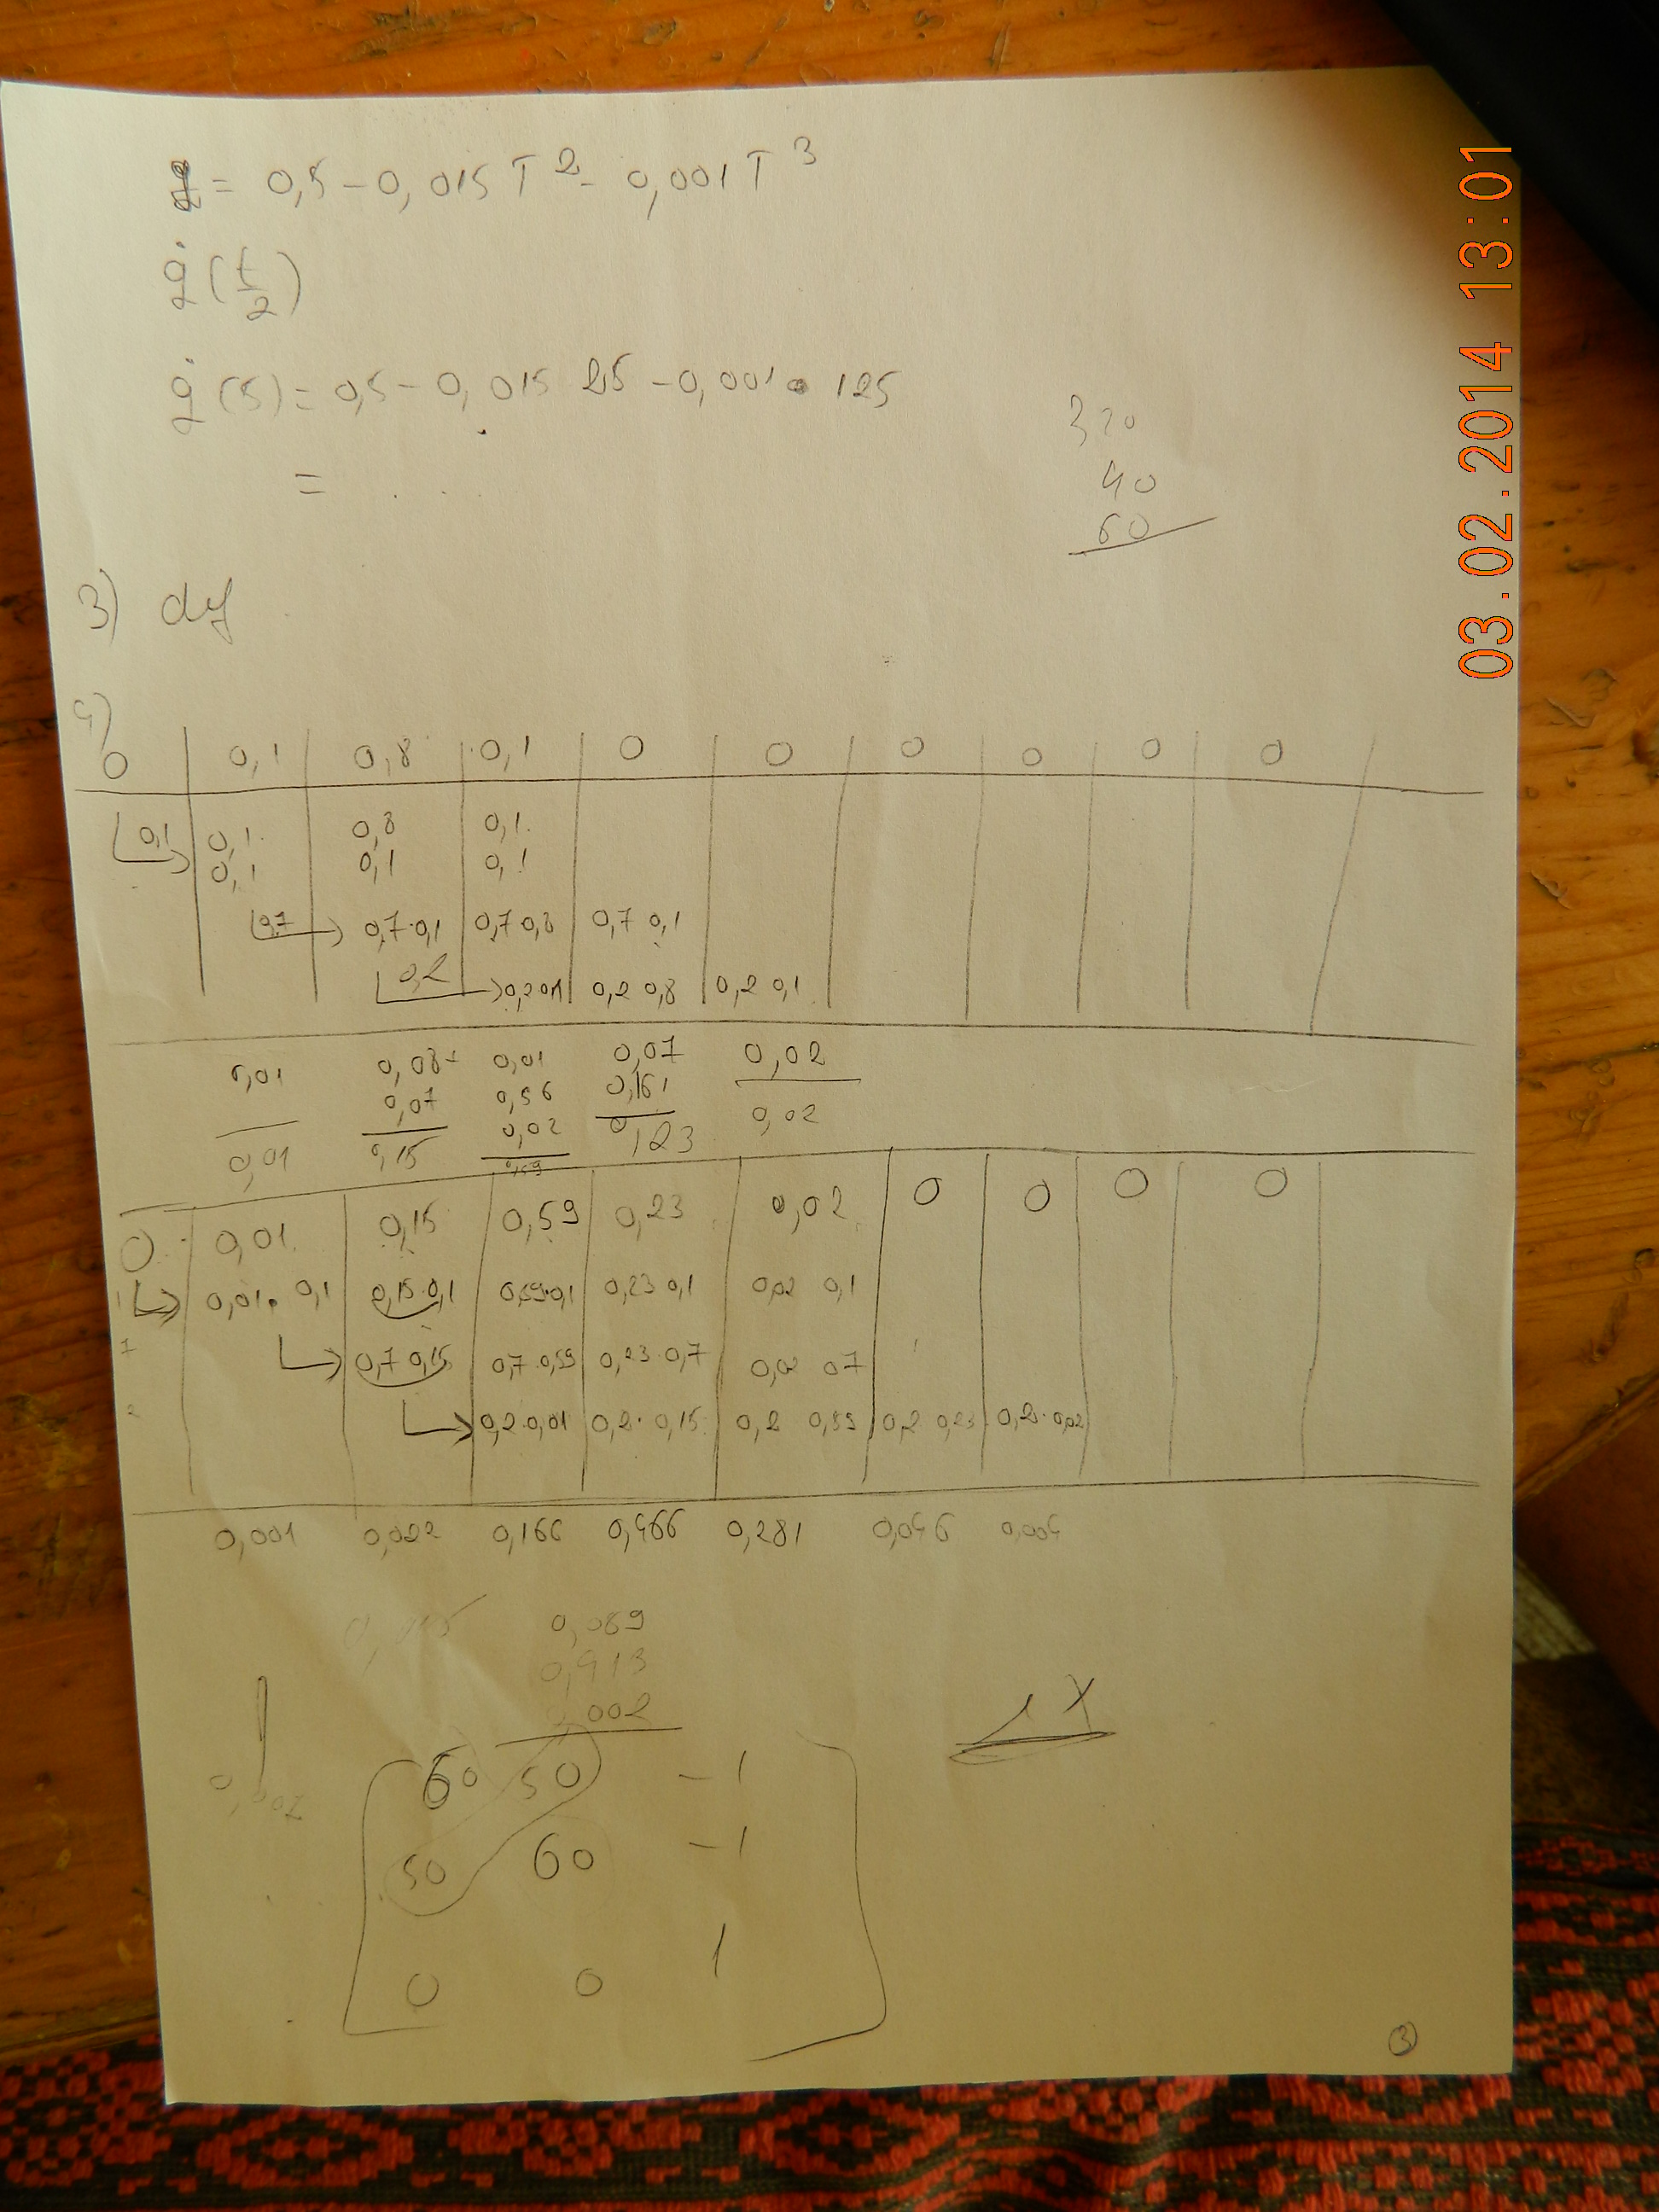 q̇ = 0,5 - 0,015 T² - 0,001 T³
q̇ (t/2)
q̇ (5) = 0,5 - 0,015 25 - 0,001 • 125
= . . .
320
40
60
3) dy
4)
0 0,1 0,8 0,1 0 0 0 0 0 0
0,1 0,1 0,8 0,1
0,1 0,1 0,1
0,7 0,7·0,1 0,7 0,8 0,7 0,1
0,2 0,2 0,1 0,2 0,8 0,2 0,1
0,01 0,08+ 0,01 0,07 0,02
0,07 0,56 0,161
0,02
0,01 0,15 0,59 0,23 0,02
0 0,01 0,15 0,59 0,23 0,02 0 0 0 0
1 0,01• 0,1 0,15·0,1 0,59·0,1 0,23 0,1 0,02 0,1
7 0,7 0,15 0,7·0,59 0,23·0,7 0,02 07
2 0,2·0,01 0,2·0,15 0,2 0,59 0,2 0,23 0,2·0,02
0,001 0,022 0,166 0,466 0,281 0,046 0,004
0,089
0,913
002
60 50 -1
50 60 -1
0 0 1
3
03.02.2014 13:01